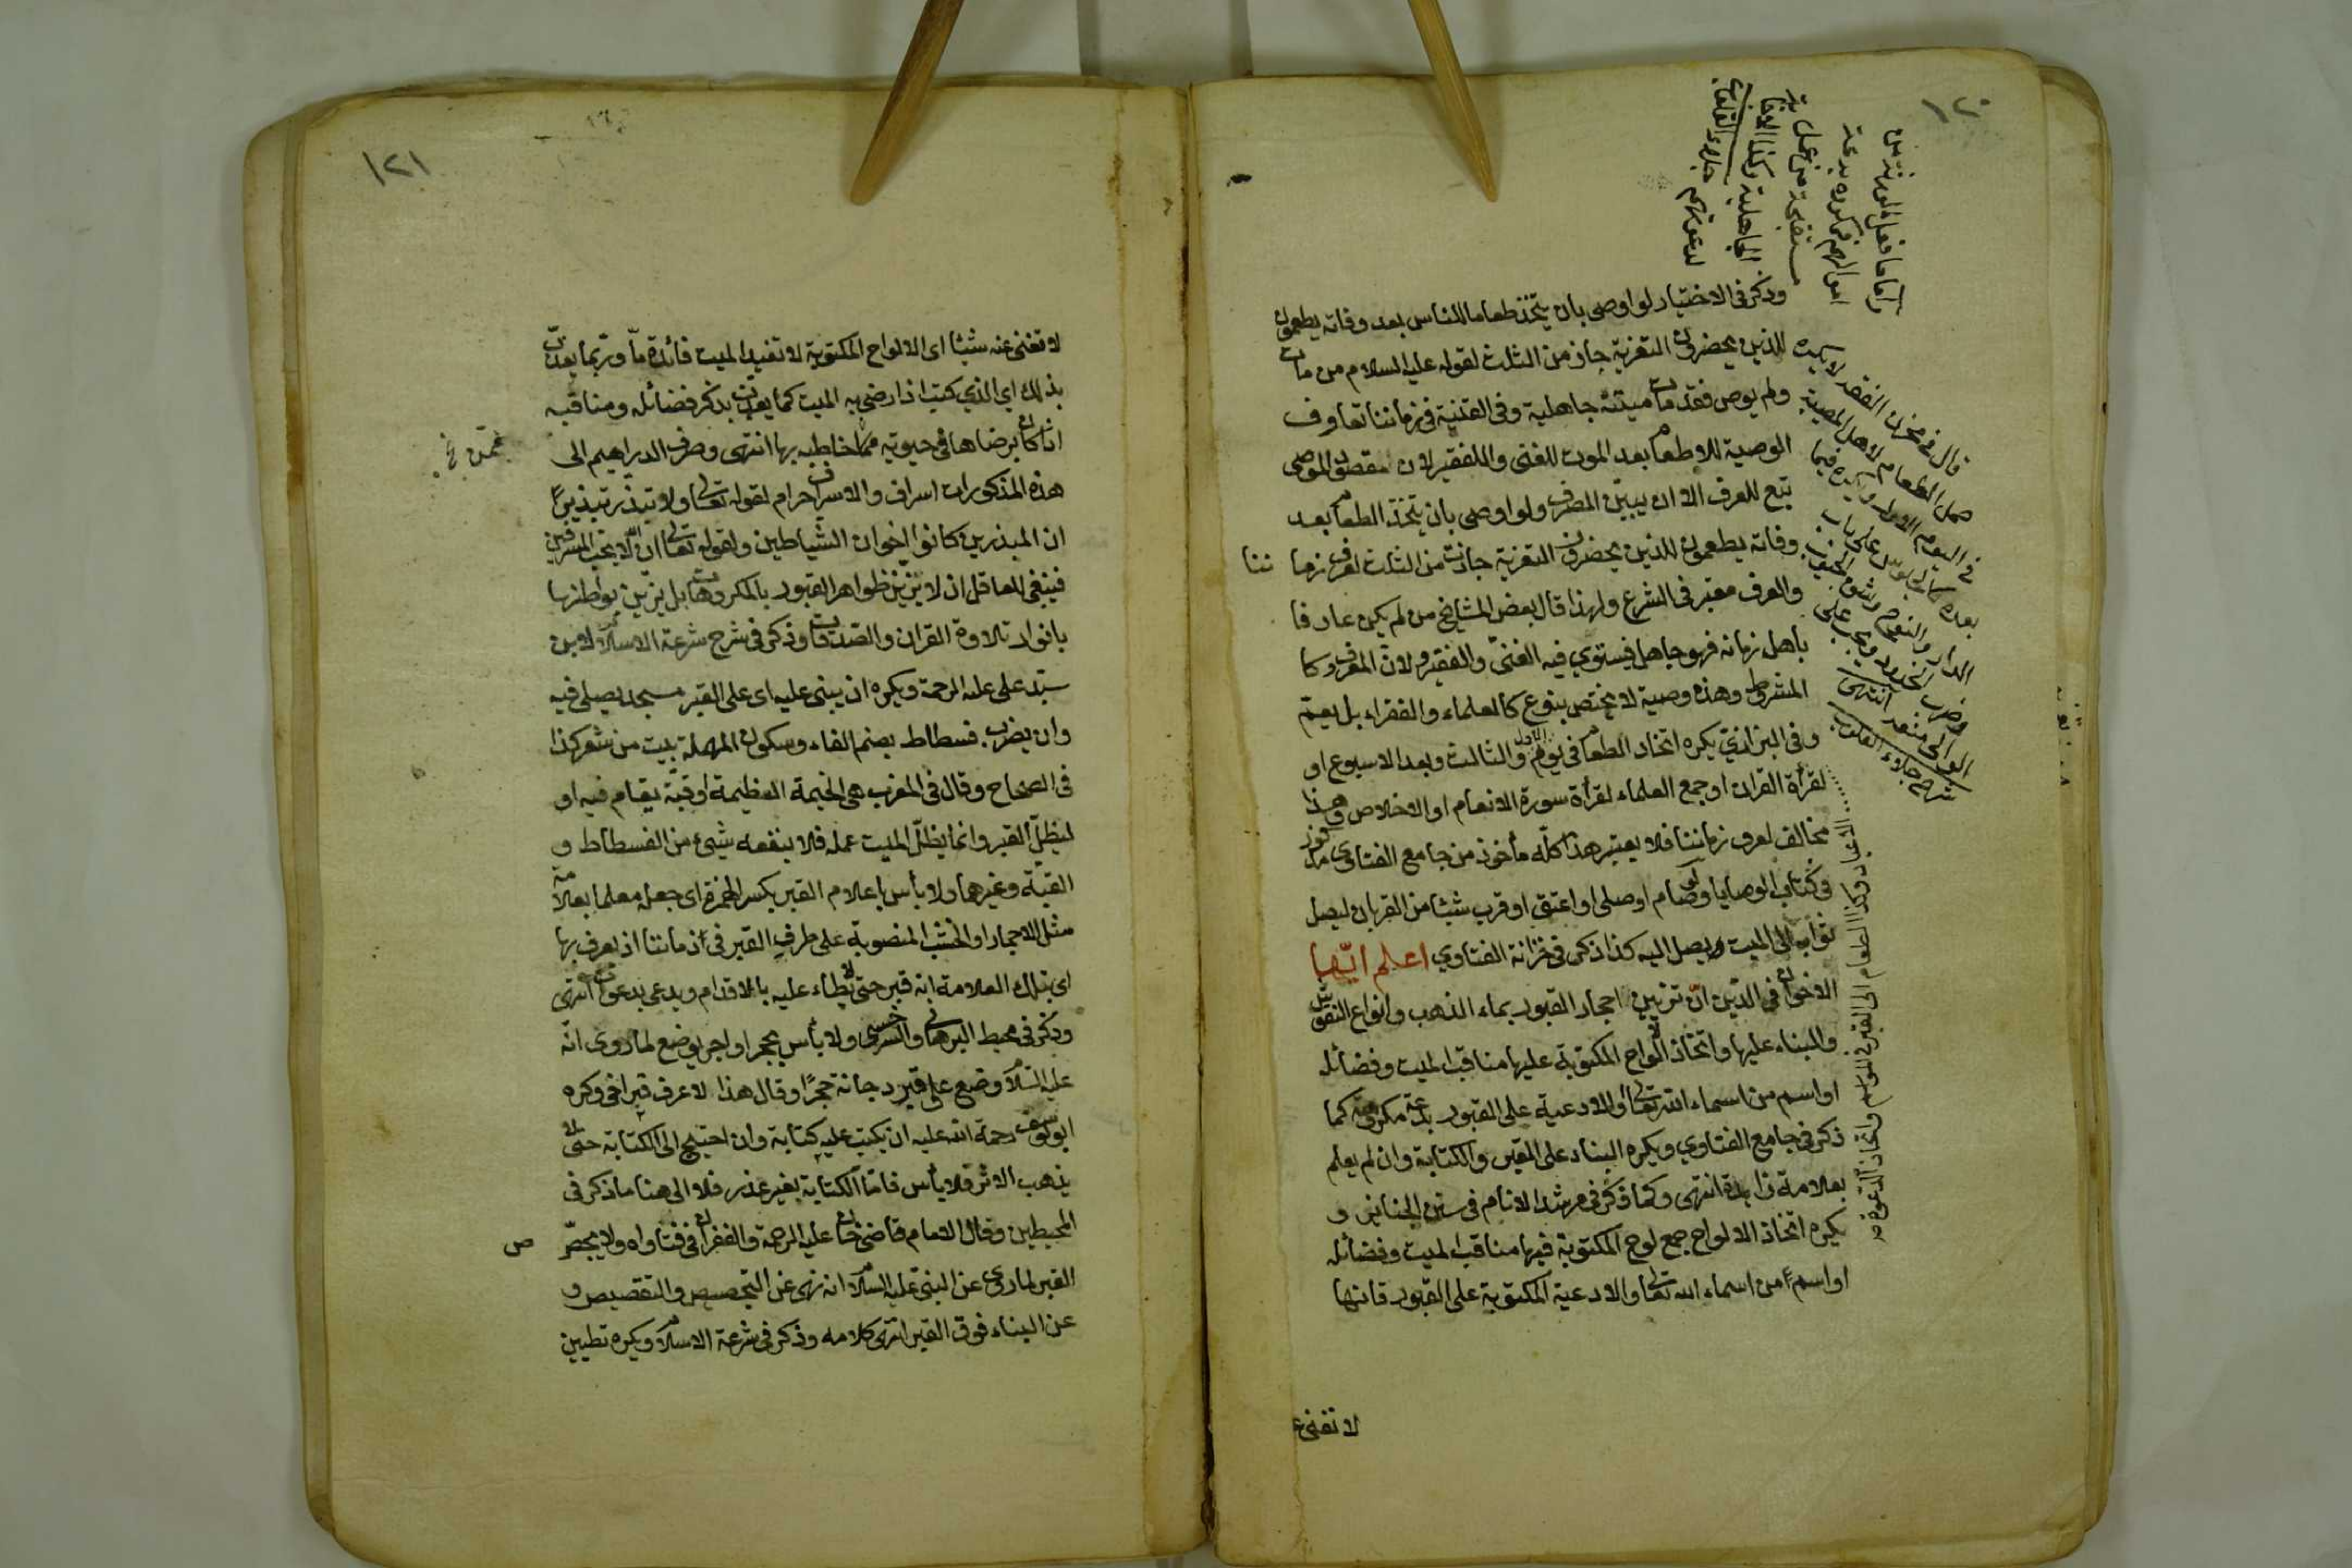 ١٢٠
وذكر فى الاختيار لو اوصى بان يتخذ طعاما للناس بعد وفاته يطعمون
للذين يحضرون التعزية جاز من الثلث لقوله عليه السلام من مات
ولم يوص فقد مات ميتته جاهلية وفى القنية فى زماننا تعارف
الوصية للاطعام بعد الموت للغنى والفقير لان مقصود الموصى
تبع للعرف الا ان يبين المصرف ولو اوصى بان يتخذ الطعام بعد
وفاته يطعمون للذين يحضرون التعزية جازت من الثلث لعرف زما ننا
والعرف معتبر فى الشرع ولهذا قال بعض المشايخ من لم يكن عارفا
باهل زمانه فهو جاهل فيستوي فيه الغنىّ والفقير لانّ المعروف كا
المشروط وهذه وصية لا يختص بنوع كالعلماء والفقراء بل يعمّ
وفى البزازيّ يكره اتخاذ الطعام فى يوم الاول والثالث وبعد الاسبوع او
لقرأة القران او جمع العلماء لقرأة سورة الانعام او الاخلاص وهذا
مخالف لعرف زماننا فلا يعتبر هذا كلّه مأخوذ من جامع الفتاوى
فى كتاب الوصايا ولو صام او صلى او اعتق او قرب شيئا من القربان ليصل
ثوابه الى الميت يصل اليه كذا ذكر فى خزانة الفتاوي اعلم ايّها
الاخوان فى الدّين انّ تزيين احجار القبور بماء الذهب وانواع النقوش
والبناء عليها واتخاذ الالواح المكتوبة عليها مناقب الميت وفضائله
او اسم من اسماء الله تعالى والادعية على القبور بدعة مكروهة كما
ذكر فى جامع الفتاوي ويكره البناء على القبر والكتابة وان لم يعلم
بعلامة زايدة انتهى وكما ذكر فى مرشد الانام فى سنن الجنائز و
يكره اتخاذ الالواح جمع لوح المكتوبة فيها مناقب الميت وفضائله
او اسم من اسماء الله تعالى والادعية المكتوبة على القبور فانها
لا تغنى ع
اما ما فعل الورثة من
اموالهم فمكروه بدعة
مستقبحة من عمل
الجاهلية وكذا
قال فى مخزن الفقه لا يكره
حمل الطعام لاهل المصيبة
فى اليوم الاول ويكره فيما
بعده
شرح جلاء القلوب
١٢١
لا تغنى عنه شيئا اى الالواح المكتوبة لا تفيد الميت فائدة مّا وربّما يعذب
بذلك اي الذي كتب اذا رضى به الميت كما يعذب بذكر فضائله ومناقبه
اذا كان يرضاها فى حيوته ممّا خاطبه بها انتهى وصرف الدراهيم الى
هذه المذكورات اسراف والاسراف حرام لقوله تعالى ولا تبذر تبذيرًا
ان المبذرين كانوا اخوان الشياطين ولقوله تعالى ان الله لا يحب المسرفين
فينبغى للعاقل ان لا يزين ظواهر القبور بالمكروهات بل يزين بواطنها
بانوار تلاوة القران والصدقات وذكر فى شرح شرعة الاسلام لابن
سيّد على عليه الرحمة ويكره ان يبنى عليه اى على القبر مسجد يصلى فيه
وان يضرب فسطاط بضم الفاء وسكون المهملة بيت من شعر كذا
فى الصحاح وقال فى المغرب هى الخيمة العظيمة او قبّة يقام فيه او
ليظلّ القبر وانما يظلّ الميت عمله فلا ينفعه شيئ من الفسطاط و
القبّة وغيرها ولا بأس باعلام القبر بكسر الهمزة اى جعله معلما بعلامة
مثل الاحجار او الخشب المنصوبة على طرف القبر فى ازماننا اذ يعرف بها
اى بتلك العلامة انه قبر حتى لا يطاء عليه بالاقدام ويدعى بدعوات انتهى
وذكر فى محيط البرهانى والسرخسى ولا بأس بحجر او اجر يوضع لما روى انّه
عليه السّلام وضع على قبر دجانة حجرًا وقال هذا لاعرف قبر اخى وكره
ابو يوسف رحمة الله عليه ان يكتب عليه كتابة وان احتيج الى الكتابة حتى لا
يذهب الاثر فلا بأس فامّا الكتابة بغير عذر فلا الى هنا ما ذكر فى
المحيطين وقال الامام قاضيخان عليه الرحمة والغفران فى فتاواه ولا يجصّص
القبر لما روى عن النبىّ عليه السلام انه نهى عن التجصيص والتقصيص و
عن البناء فوق القبر انتهى كلامه وذكر فى شرعة الاسلام ويكره تطيين